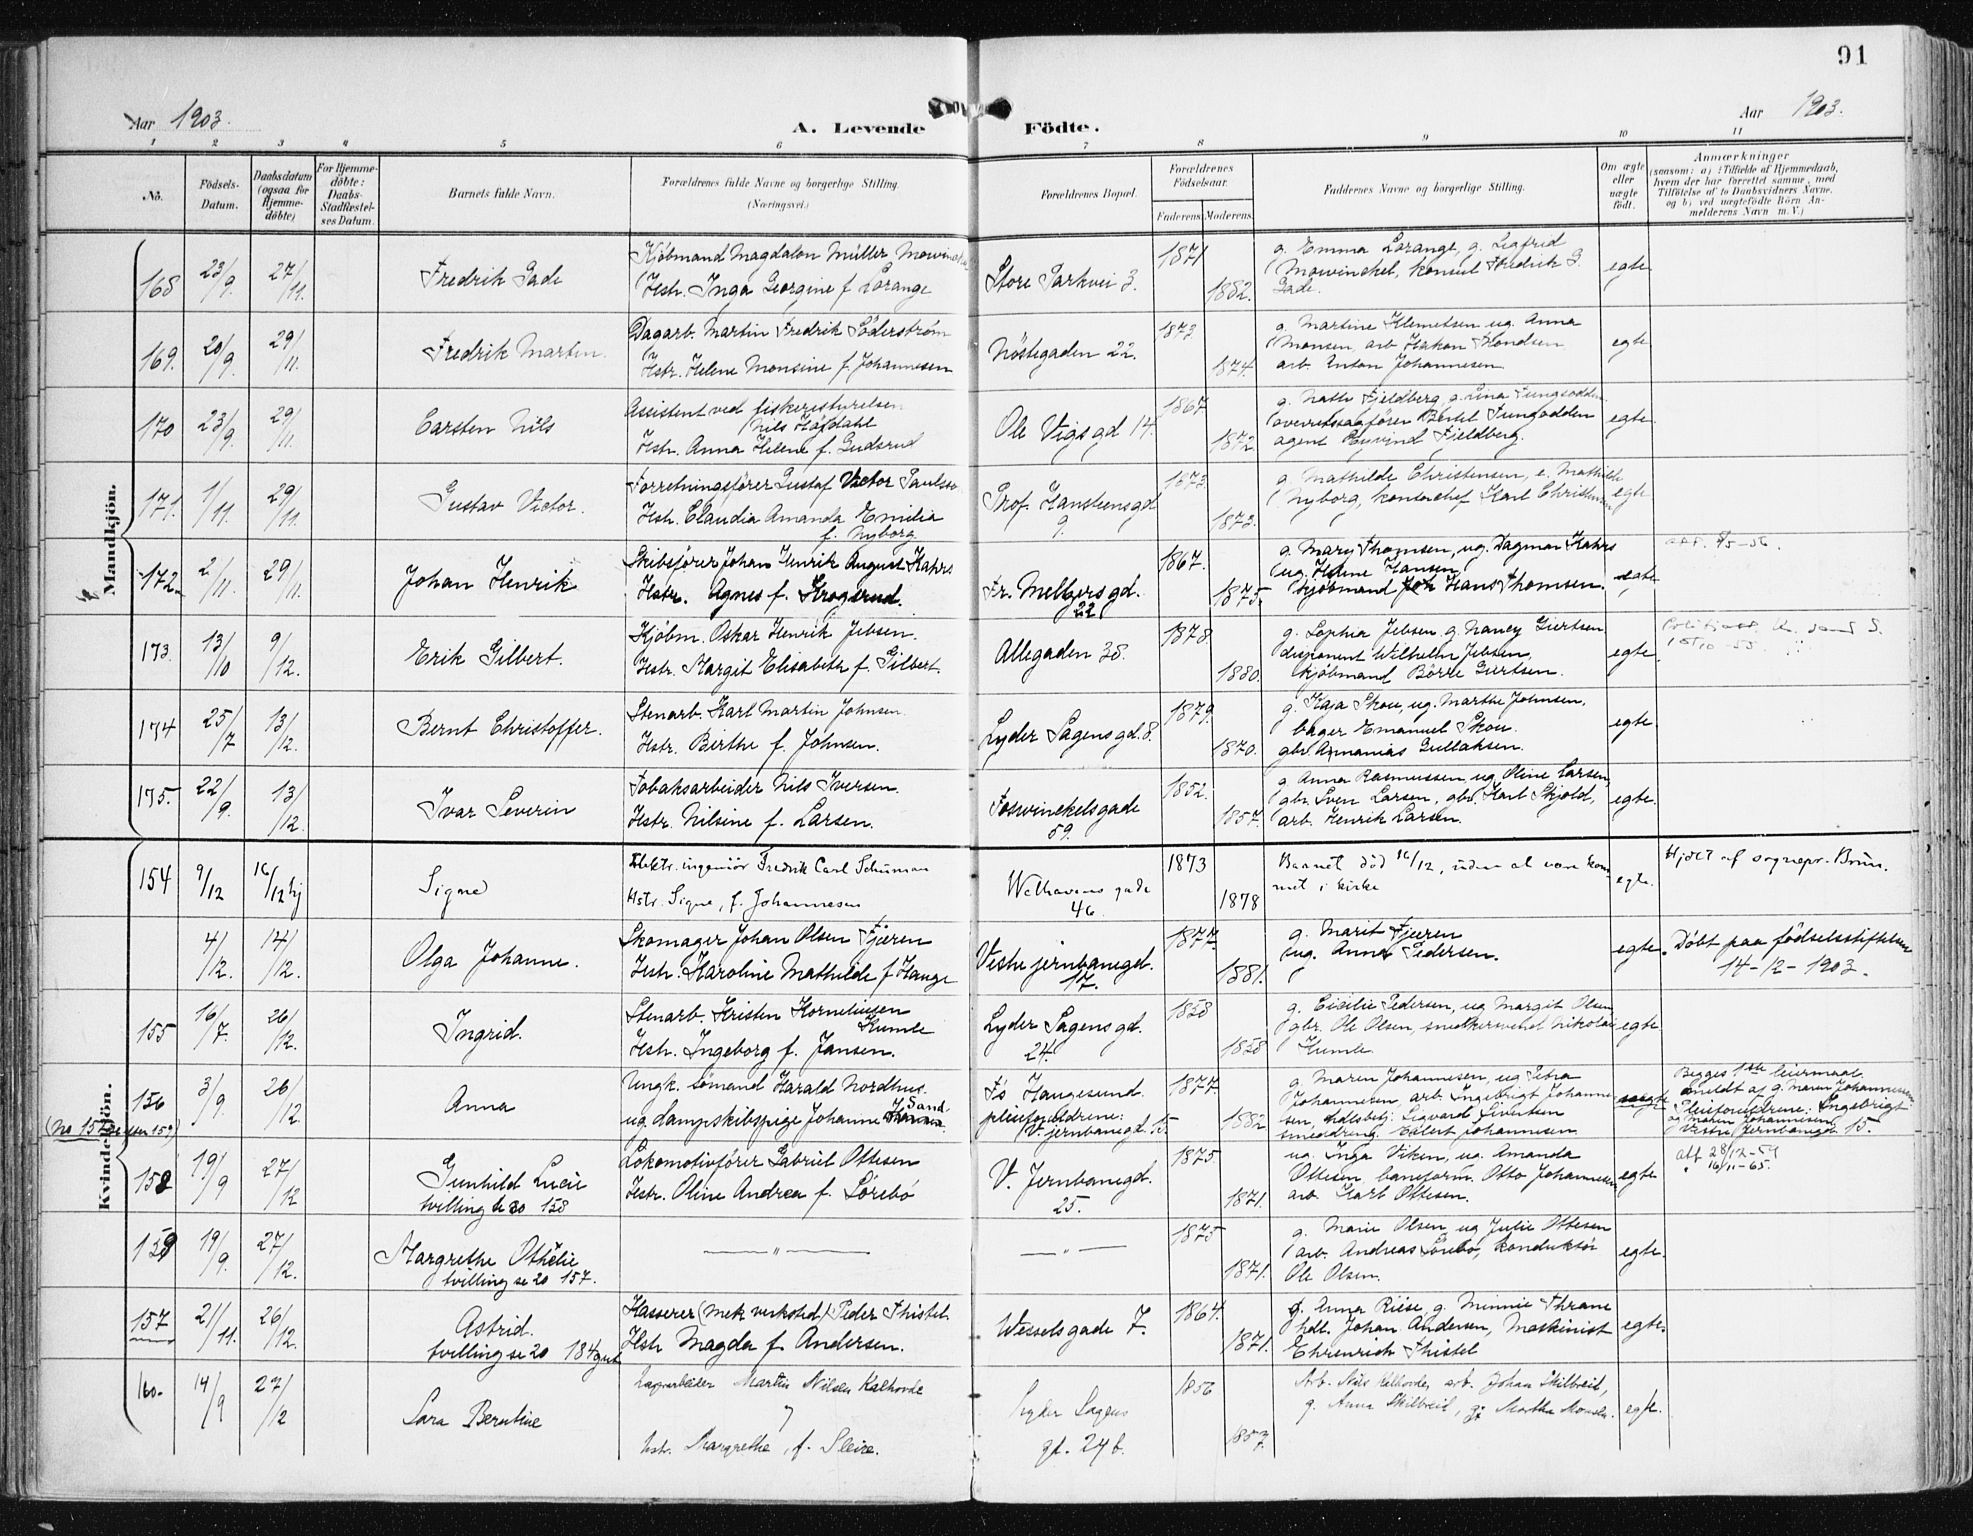 91
Aar 1903.
A. Levende Födte.
Aar 1903.
1 2 3 4 5 6 7 8 9 10 11
No.
Födsels-Datum.
Daabsdatum (ogsaa for Hjemme-döbte)
For Hjemme-döbte: Daabs-Stadfæstel-ses Datum.
Barnets fulde Navn.
Forældrenes fulde Navne og borgerlige Stilling. (Næringsvei.)
Forældrenes Bopæl.
Forældrenes Födselsaar.
Faderens. Moderens.
Faddernes Navne og borgerlige Stilling.
Om ægte eller uægte födt.
Anmærkninger
(saasom: a) i Tilfælde af Hjemmedaab,
hvem der har forrettet samme, med
Tilföielse af to Daabsvidners Navne,
og b) ved uægtefödte Börn An-
melderens Navn m. V.)
Mandkjön.
168 23/9. 27/11. Fredrik Gade
Kjöbmand Magdalon Müller Mowinckel
Hstr. Inga Georgine f Lorange
Store Parkvei 3. 1871 1882.
g. Emma Lorange, g. Sigfrid
Mowinckel, konsul Fredrik G.
Gade. egte
169. 20/9 29/11. Fredrik Martin.
Dagarb. Martin Fredrik Söderström
Hstr. Helene Monsine f. Johannesen
Nöstegaden 22. 1873. 1874.
g. Martine Klemetsen ug. Anna
Monsen, arb Haakon
arb. Anton Johannesen egte
170 23/9. 29/11. Carsten Nils
Assistent ved fiskeristyrelsen
Nils
Hstr. Anna Helene f. Gudsrud
Ole Vigs gd 14. 1867 1872.
g. Fjeldberg g. Lina
Bertel
agent Eyvind Fjeldberg. egte
171. 1/11. 29/11. Gustav Victor.
Forretningsförer Gustaf Victor Paulson
Hstr. Claudia Amanda Emilia
f. Nyborg
Prof. Hansteensgd
9. 1873. 1873.
g. Mathilde Christensen, e. Mathilde
Nyborg, kontorchef Karl Christensen egte
172. 2/11. 29/11. Johan Henrik
Skibsförer Johan Henrik August Kahrs
Hstr. Agnes f. Krogsrud.
Fr. Meltzers gd.
22 1867. 1875.
g. Mary Thomsen, ug. Dagmar Kahrs
ug. Helene Hansen
kjöbmand Hans Thomsen. egte
173. 13/10 9/12. Erik Gilbert.
Kjöbm. Oskar Henrik Jebsen.
Hstr. Margit Elisabeth f. Gilbert.
Allegaden 38. 1878. 1880.
g. Sophia Jebsen, g. Nancy Giertsen
disponent Wilhelm Jebsen,
kjöbmand Börre Giertsen. egte
174 25/7 13/12. Bernt Christoffer.
Stenarb. Karl Martin Johnsen.
Hstr. Birthe f. Johnsen.
Lyder Sagens gd. 8. 1879. 1870.
g. Kaja Skou, ug. Marthe Johnsen,
bager Emanuel Skou.
gbr. Annanias Gullaksen. egte
175. 22/9. 13/12. Ivar Severin
Tobaksarbeider Nils Iversen.
Hstr. Nilsine f. Larsen.
Foswinckels gade
59. 1852. 1857.
g. Anna Rasmussen, ug. Oline Larsen,
gbr. Sven Larsen, gbr. Karl Skjold,
arb. Henrik Larsen. egte.
Kvindekjön.
154 9/12 16/12 hj Signe
Elektr. ingeniör Fredrik Carl Schuman
Hstr. Signe, f. Johannesen
Welhavens gade
46. 1873 1878
Barnet död 16/12, uden at være kom-
met i kirke egte.
Hjdöbt af sognepr. Brun.
4/12. 14/12. Olga Johanne.
Skomager Johan Olsen Fjæren
Hstr. Karoline Mathilde f Hauge
Vestre jernbanegd.
17. 1877. 1881.
g. Marit Fjæren
ug. Anna Pedersen. egte.
Döbt paa födselsstiftelsen
14-12-1903.
155 16/7. 26/12. Ingrid.
Stenarb. Kristen Korneliusen
Humle
Hstr. Ingeborg f. Jansen.
Lyder Sagens gd.
24. 1858 1858
g. Cicilie Pedersen, ug Margit Olsen
gbr. Ole Olsen, snedkersvend Nikolai
Humle egte
156 3/9. 26/12. Anna
Ungk. sömand Harald Nordhus.
ug. dampskibspige Johanne Sand
Fs Haugesund.
pleieforældrene:
V. jernbanegd. 15. 1877. 1882
g. Maren Johannesen, ug Petra
Johannesen, arb. Ingebrigt Johanne-
sen, Sigvard Sivertsen
smeddreng Eilert Johannesen uegte
Begges 1ste leiermaal.
Anmeldt af g. Maren Johannesen
Pleieforældrene: Ingebrigt
og Maren Johannesen,
Vestre Jernbanegd 15.
(No 157 se efter 159)
158 19/9 27/12 Gunhild Lucie
tvilling se no 158
Lokomotivförer Gabriel Ottesen
Hstr. Oline Andrea f. Sörebö
V. Jernbanegd.
25. 1875 1871.
ug. Inga Viken, ug. Amanda
Ottesen baneform. Otto Johannesen
arb. Karl Ottesen. egte
att 28/12-59
" 16/11-65.
159 19/9. 27/12. Margrethe Othelie
tvilling se no 157.
— " —
— " — 1875 1871.
g. Marie Olsen, ug Julie Ottesen
arb. Andreas Sörebö, konduktör
Ole Olsen. egte.
157 2/11. 26/12. Astrid.
tvilling se no 184 gut
Kasserer (mek verksted) Peder Thistel.
Hstr Magda f. Andersen.
Wesselsgade 7. 1864. 1871.
g. Anna Riise, g. Minnie Thrane
hdl. Johan Andersen, Maskinist
Ehrenrich Thistel egte.
160. 14/9 27/12 Sara Berntine
Martin Nilsen Kalhovde
hstr. Margrethe, f. Sleire.
Lyder Sagens
gt. 24 b. 1856 1857.
Arb. Nils Kalhovde, arb. Johan Skilbreid,
g. Anna Skilbreid, g. Martha egte.